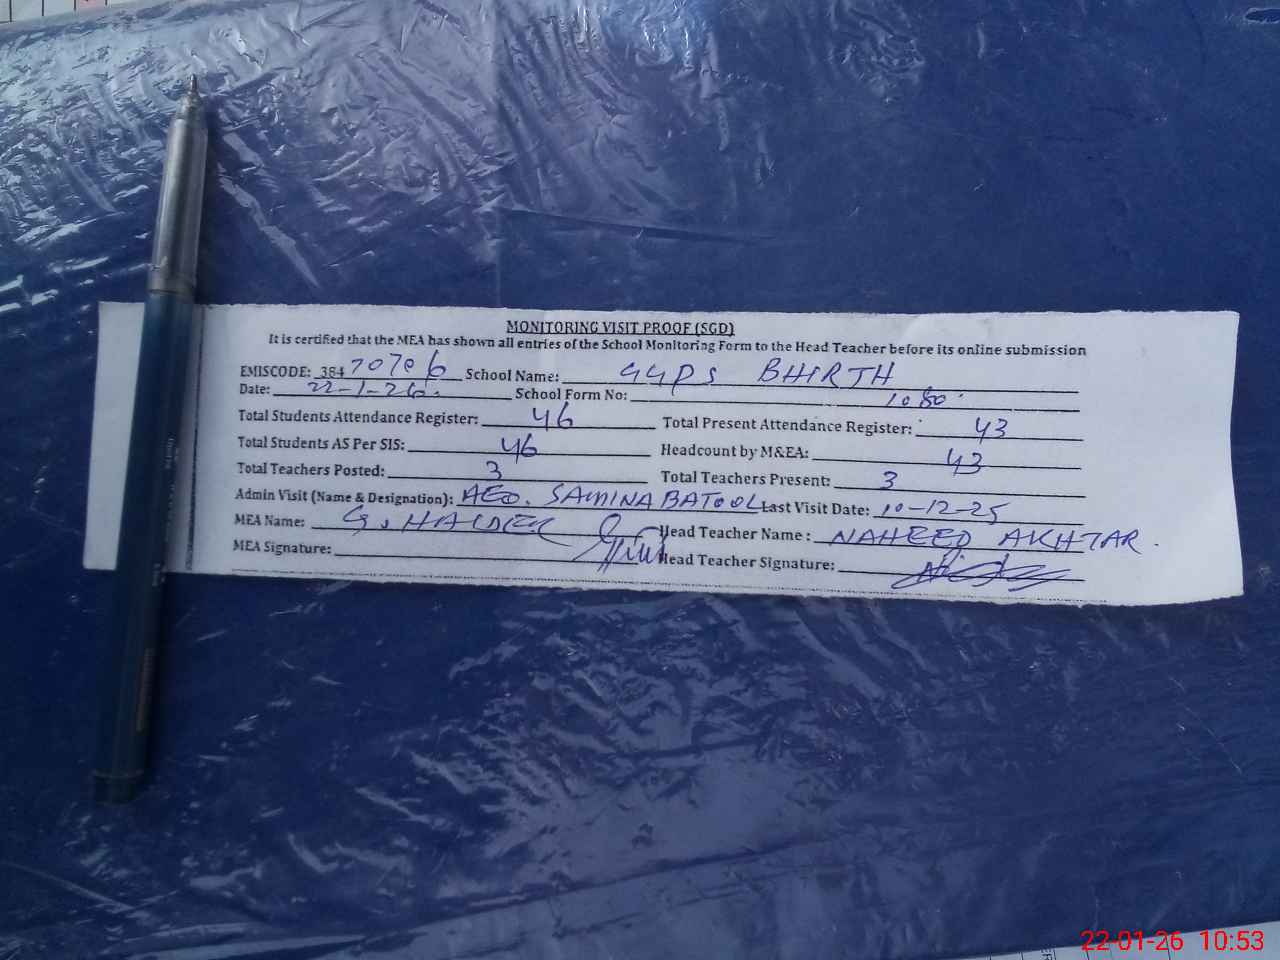 MONITORING VISIT PROOF (SGD)
It is certified that the MEA has shown all entries of the School Monitoring Form to the Head Teacher before its online submission
EMISCODE: 384 70706 School Name: GGPS BHIRTH
Date: 22-1-26. School Form No: 1080.
Total Students Attendance Register: 46 Total Present Attendance Register: 43
Total Students AS Per SIS: 46 Headcount by M&EA: 43
Total Teachers Posted: 3 Total Teachers Present: 3
Admin Visit (Name & Designation): AEO. SAMINA BATOOL Last Visit Date: 10-12-25
MEA Name: G. HAIDER Head Teacher Name: NAHEED AKHTAR.
MEA Signature: Head Teacher Signature:
22-01-26 10:53